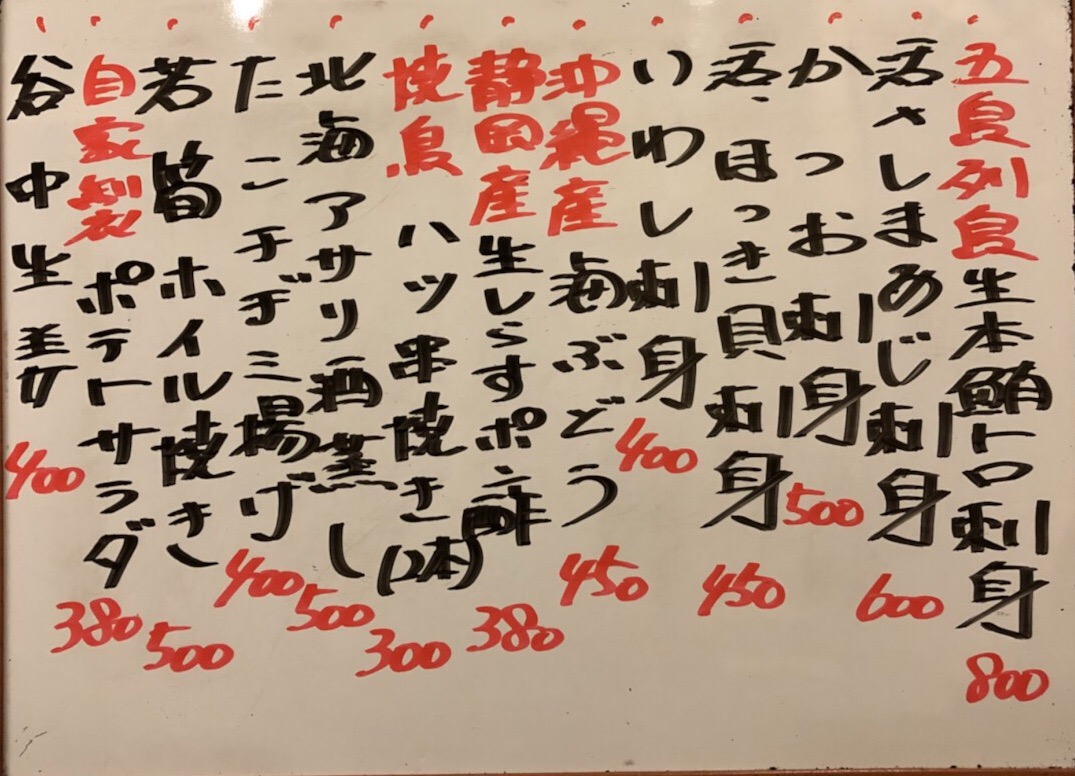 五島列島生本鮪トロ刺身 800
活〆しまあじ刺身 600
かつお刺身 500
活、ほっき貝刺身 450
いわし刺身 400
沖縄産海ぶどう 450
静岡産生しらすポン酢 380
焼鳥 ハツ串焼き(2本) 300
北海アサリ酒蒸し 500
たこチヂミ揚げ 400
若筍ホイル焼き 500
自家製ポテトサラダ 380
谷中生姜 400